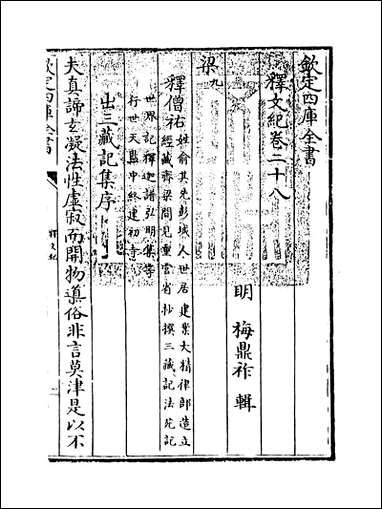 欽定四庫全書
釋文紀卷二十八
明 梅鼎祚 輯
梁九
釋僧祐 姓俞其先彭城人世居建業大精律部造立
經藏齊梁間見重雲省抄撰三藏記法苑記
世界記釋迦譜弘明集等
行世天監中終建初寺
出三藏記集序
夫真諦玄凝法性虛寂而開物導俗非言莫津是以不
欽定四庫全書
釋文紀